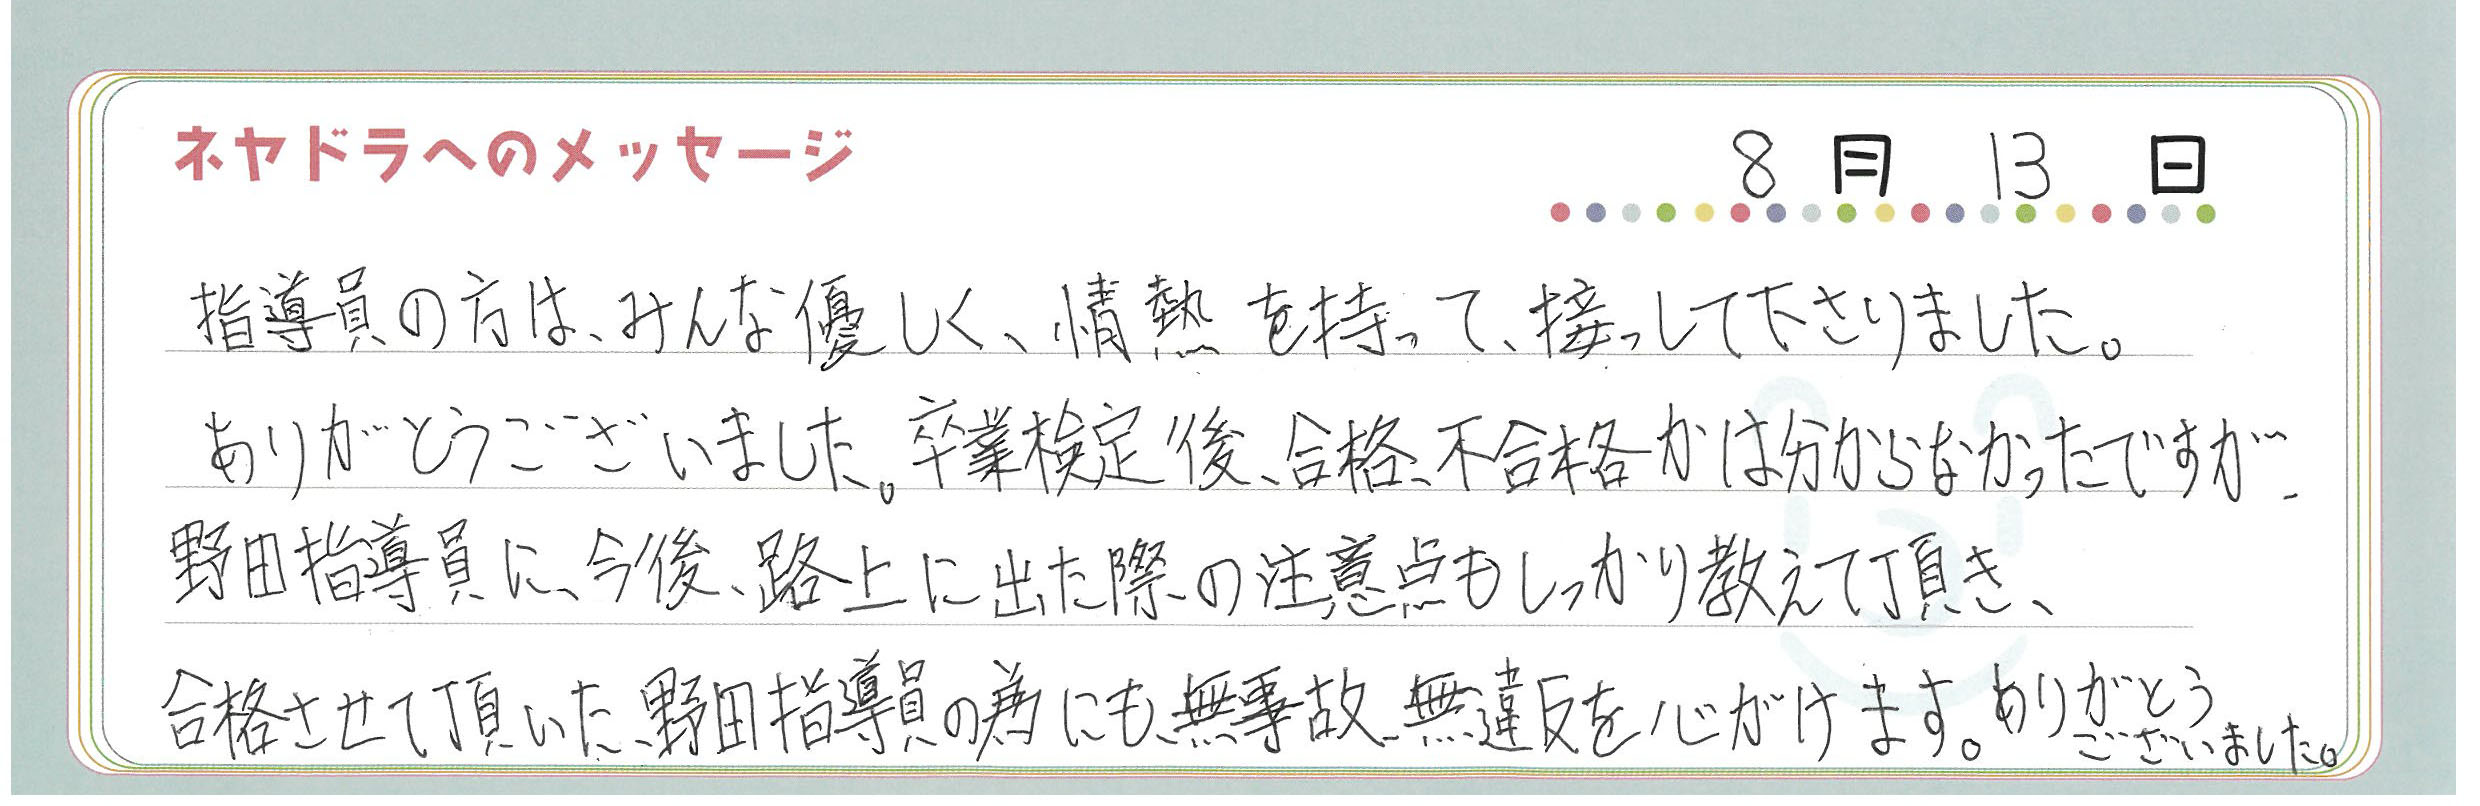 ネヤドラへのメッセージ
8月13日
指導員の方は、みんな優しく、情熱を持って、接っして下さりました。
ありがとうございました。卒業検定後、合格、不合格かは分からなかったですが、
野田指導員に、今後、路上に出た際の注意点もしっかり教えて頂き、
合格させて頂いた、野田指導員の為にも、無事故、無違反を心がけます。ありがとう
ございました。